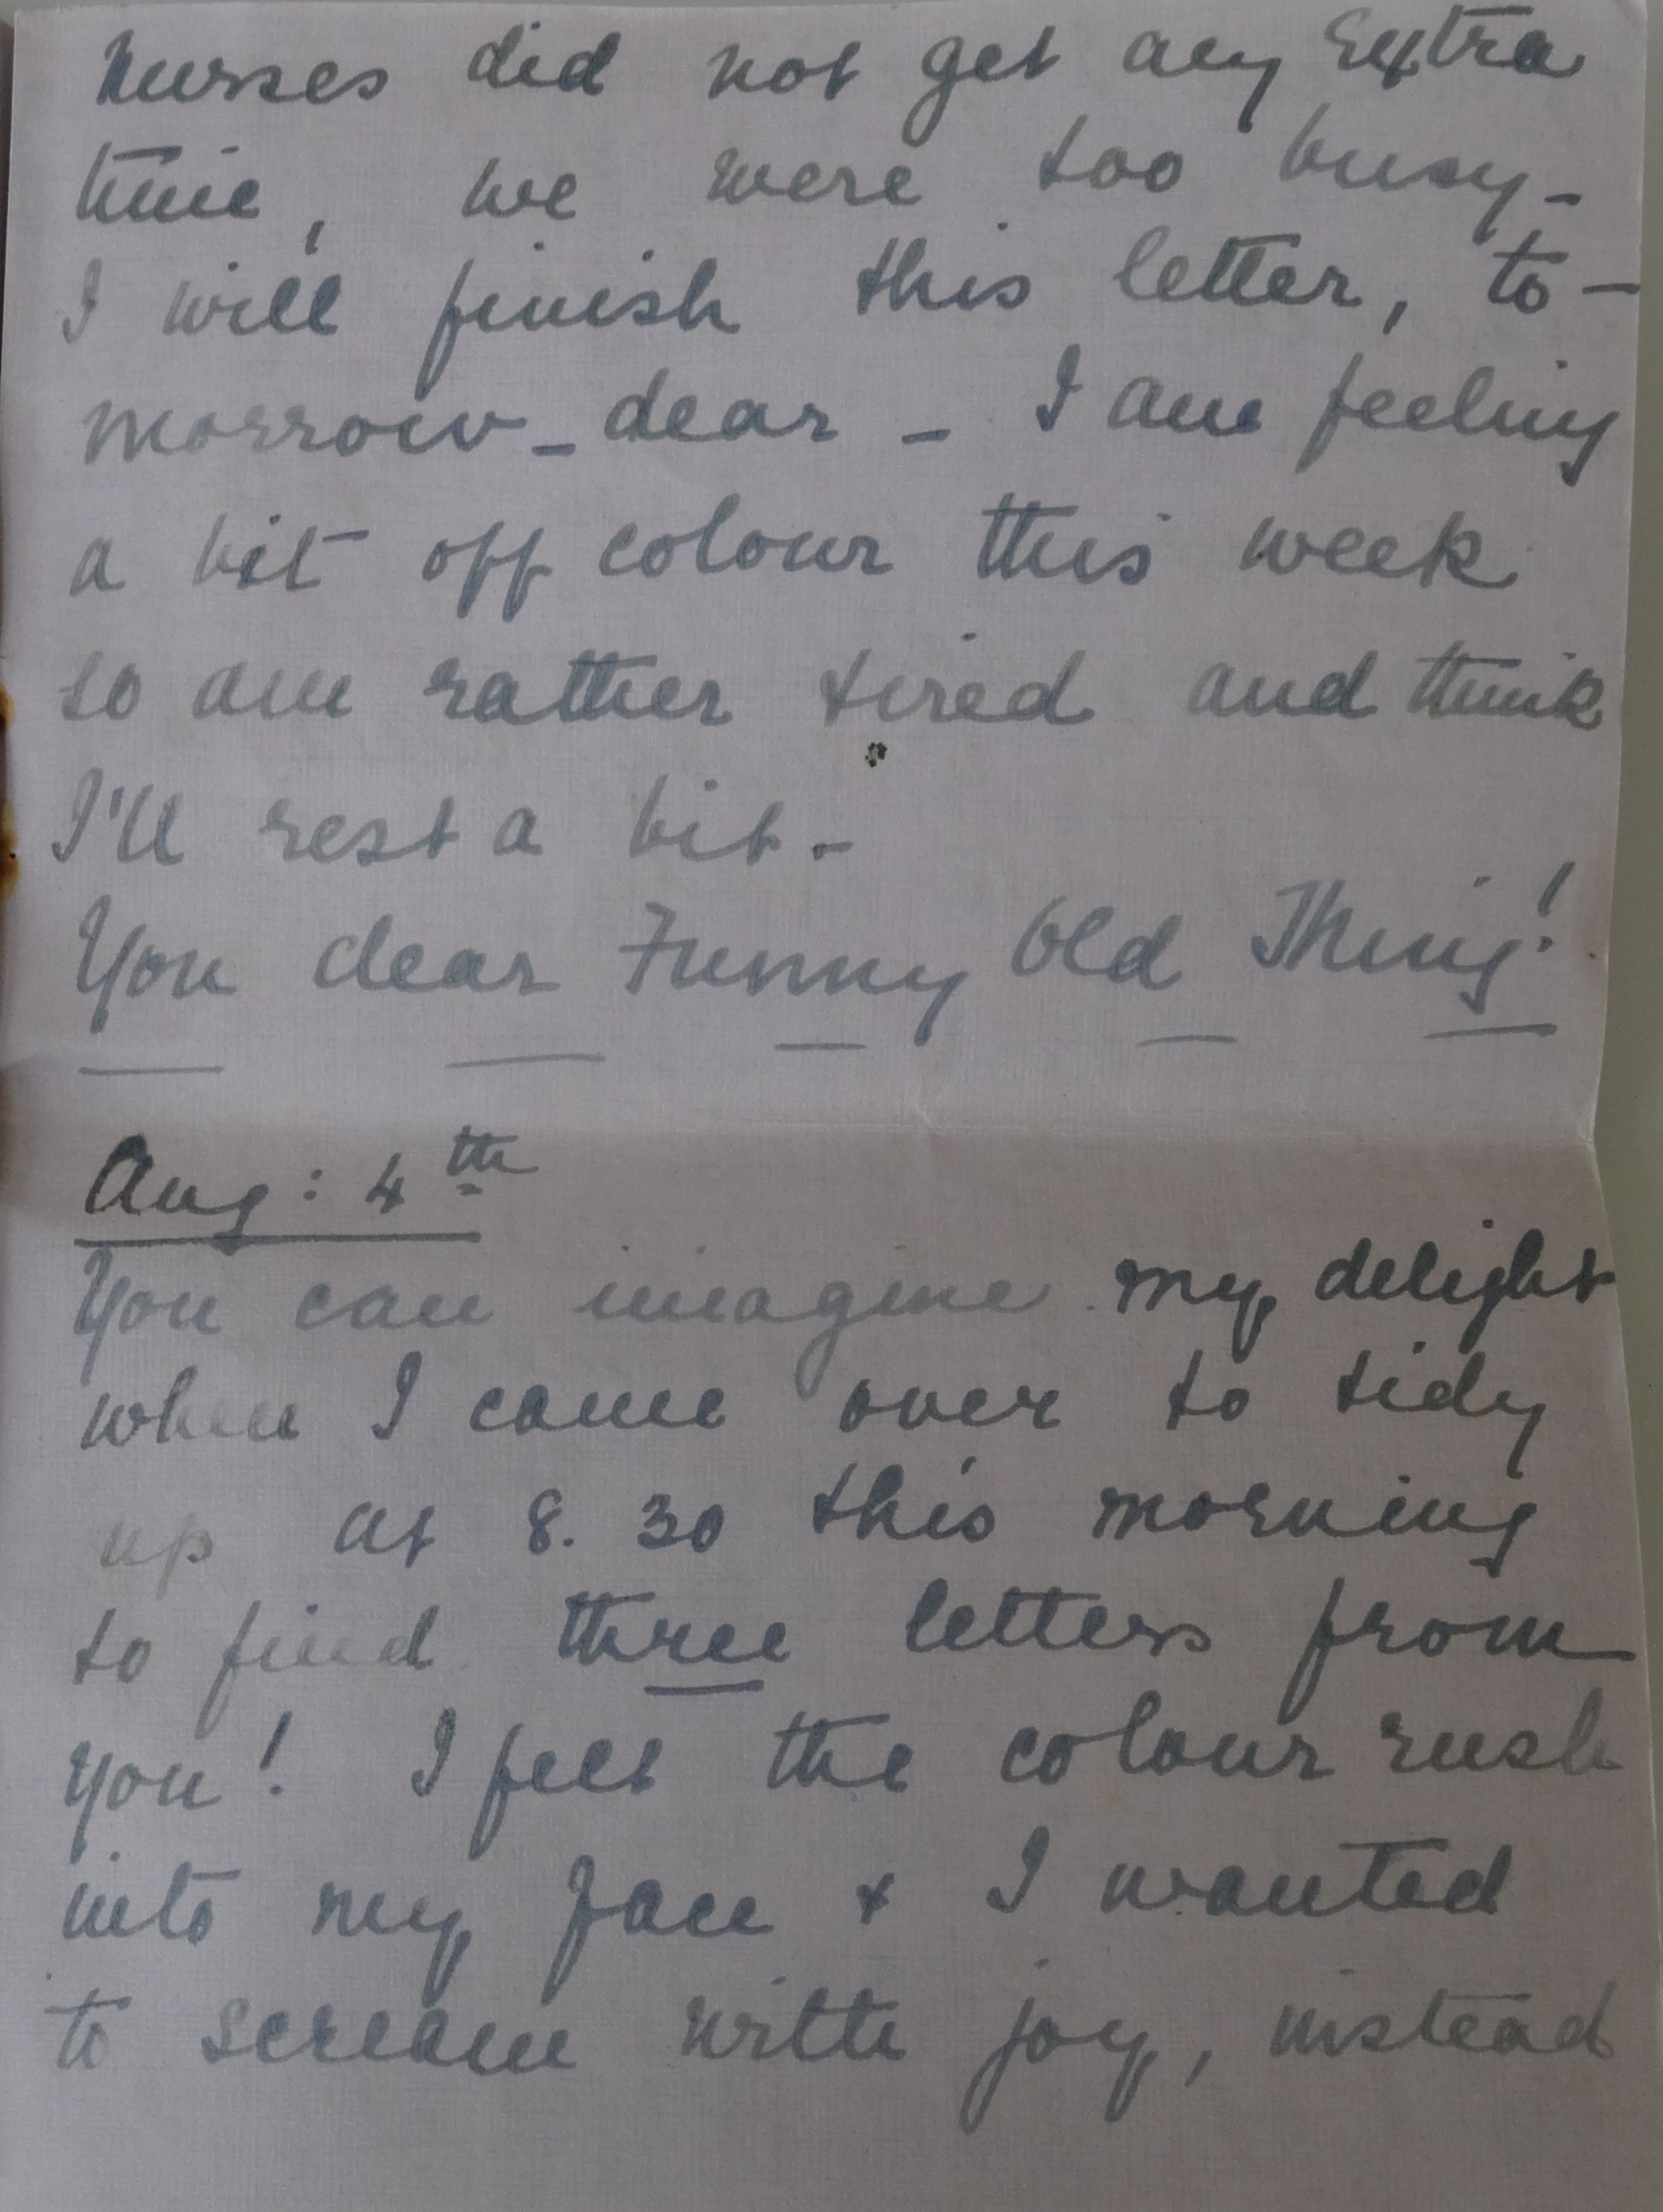 Nurses did not get any Extra
time, we were too busy -
I will finish this letter, to -
morrow - dear - I am feeling
a bit off colour this week
so am rather tired and think
I'll rest a bit -
You dear Funny Old Thing!
Aug: 4th
You can imagine my delight
when I came over to tidy
up at 8.30 this morning
to find three letters from
you! I felt the colour rush
into my face & I wanted
to scream with joy, instead